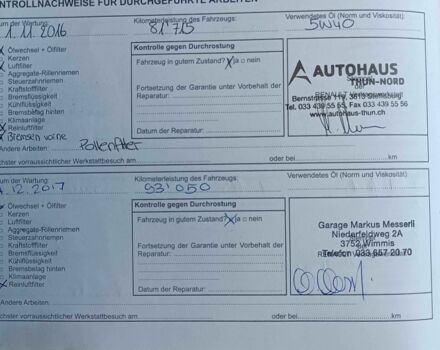 NTROLLNACHWEISE FÜR DURCHGEFÜHRTE ARBEITEN
um der Wartung:
1.11.2016
Kilometerleistung des Fahrzeugs:
81'715
Verwendetes Öl (Norm und Viskosität)
5W40
Ölwechsel + Ölfilter
Kerzen
Luftfilter
Aggregate-Rillenriemen
Steuerzahnriemen
Kraftstofffilter
Bremsflüssigkeit
Kühlflüssigkeit
Bremsbelag hinten
Klimaanlage
Reinluftfilter
Bremsen
Andere Arbeiten:
Pollenfilter
Kontrolle gegen Durchrostung
Fahrzeug in gutem Zustand? ja nein
Fortsetzung der Garantie unter Vorbehalt der Reparatur:
Datum der Reparatur:
AUTOHAUS
THUN-NORD
Bernstrasse 119, 3613 Steffisburg
Tel. 033 439 55 55, Fax 033 439 55 56
www.autohaus-thun.ch
chster voraussichtlicher Werkstattbesuch am
oder bei
km
um der Wartung:
.12.2017
Kilometerleistung des Fahrzeugs:
93'050
Verwendetes Öl (Norm und Viskosität)
Ölwechsel + Ölfilter
Kerzen
Luftfilter
Aggregate-Rillenriemen
Steuerzahnriemen
Kraftstofffilter
Bremsflüssigkeit
Kühlflüssigkeit
Bremsbelag hinten
Klimaanlage
Reinluftfilter
Andere Arbeiten:
Kontrolle gegen Durchrostung
Fahrzeug in gutem Zustand? ja nein
Fortsetzung der Garantie unter Vorbehalt der Reparatur:
Datum der Reparatur:
Garage Markus Messerli
Niederfeldweg 2A
3752 Wimmis
Telefon 033 657 20 70
chster voraussichtlicher Werkstattbesuch am
oder bei
km